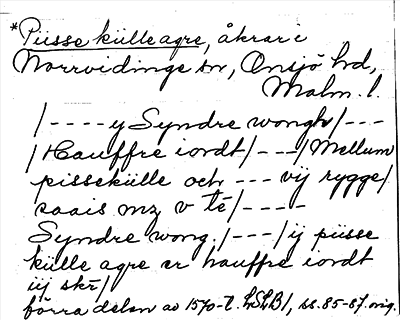 *Püsse külle agre, åkrar i
Norrvidinge sn, Onsjö hd,
Malm. l.
/---- y Syndre wongh/---
/Hauffre iordt/---/Mellum
pissekülle och --- vij rygge/
saais mz v té/----
Syndre wong. /---/ij püsse
külle agre er hauffre iordt
iij skr/
förra delen av 1570-t. LSLB/, ss. 85-87. orig.